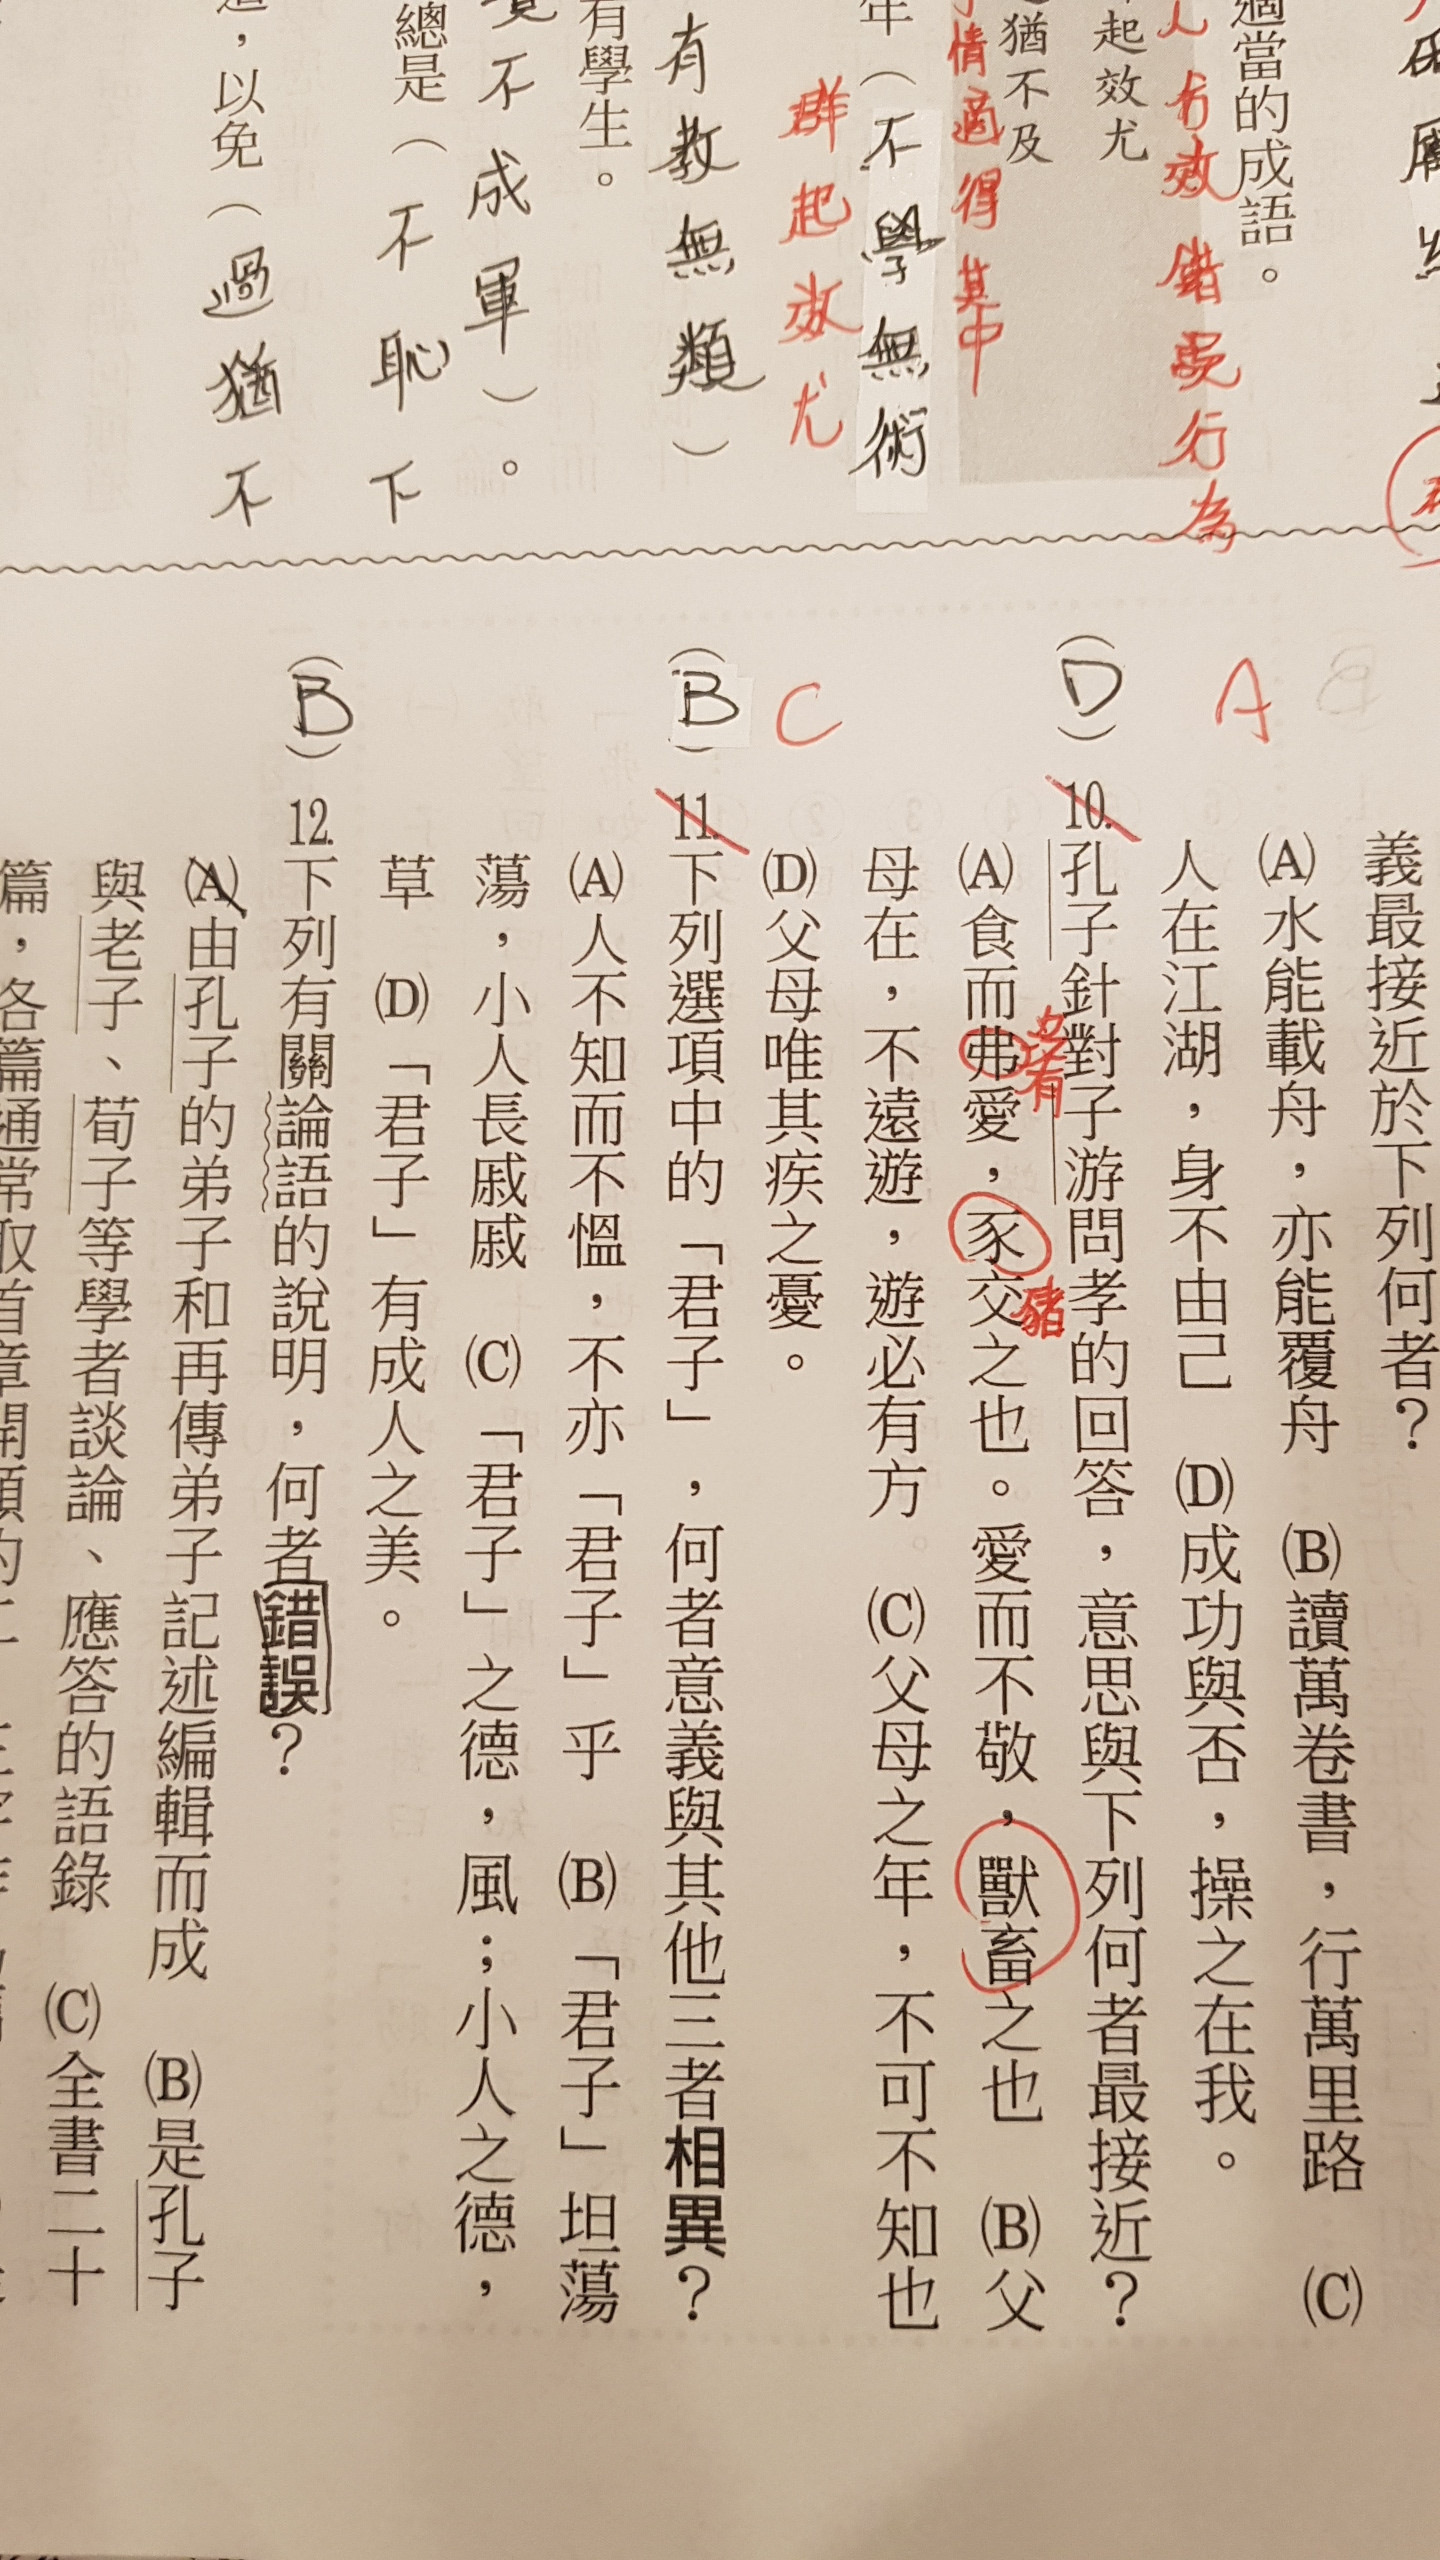 適當的成語。
人有效錯誤行為
起效尤
猶不及
情適得其中
年（不學無術
群起效尤
有教無類）
有學生。
不成軍）。
總是（不恥下
，以免（過猶不
義最接近於下列何者？
(A)水能載舟，亦能覆舟　(B)讀萬卷書，行萬里路　(C)
人在江湖，身不由己　(D)成功與否，操之在我。
A
（D）10.孔子針對子游問孝的回答，意思與下列何者最接近？
(A)食而弗愛，豕交之也。愛而不敬，獸畜之也　(B)父
豬
母在，不遠遊，遊必有方。　(C)父母之年，不可不知也
(D)父母唯其疾之憂。
C
（B）11.下列選項中的「君子」，何者意義與其他三者相異？
(A)人不知而不慍，不亦「君子」乎　(B)「君子」坦蕩
蕩，小人長戚戚　(C)「君子」之德，風；小人之德，
草　(D)「君子」有成人之美。
（B）12.下列有關論語的說明，何者錯誤？
(A)由孔子的弟子和再傳弟子記述編輯而成　(B)是孔子
與老子、荀子等學者談論、應答的語錄　(C)全書二十
篇，各篇通常取首章開頭的